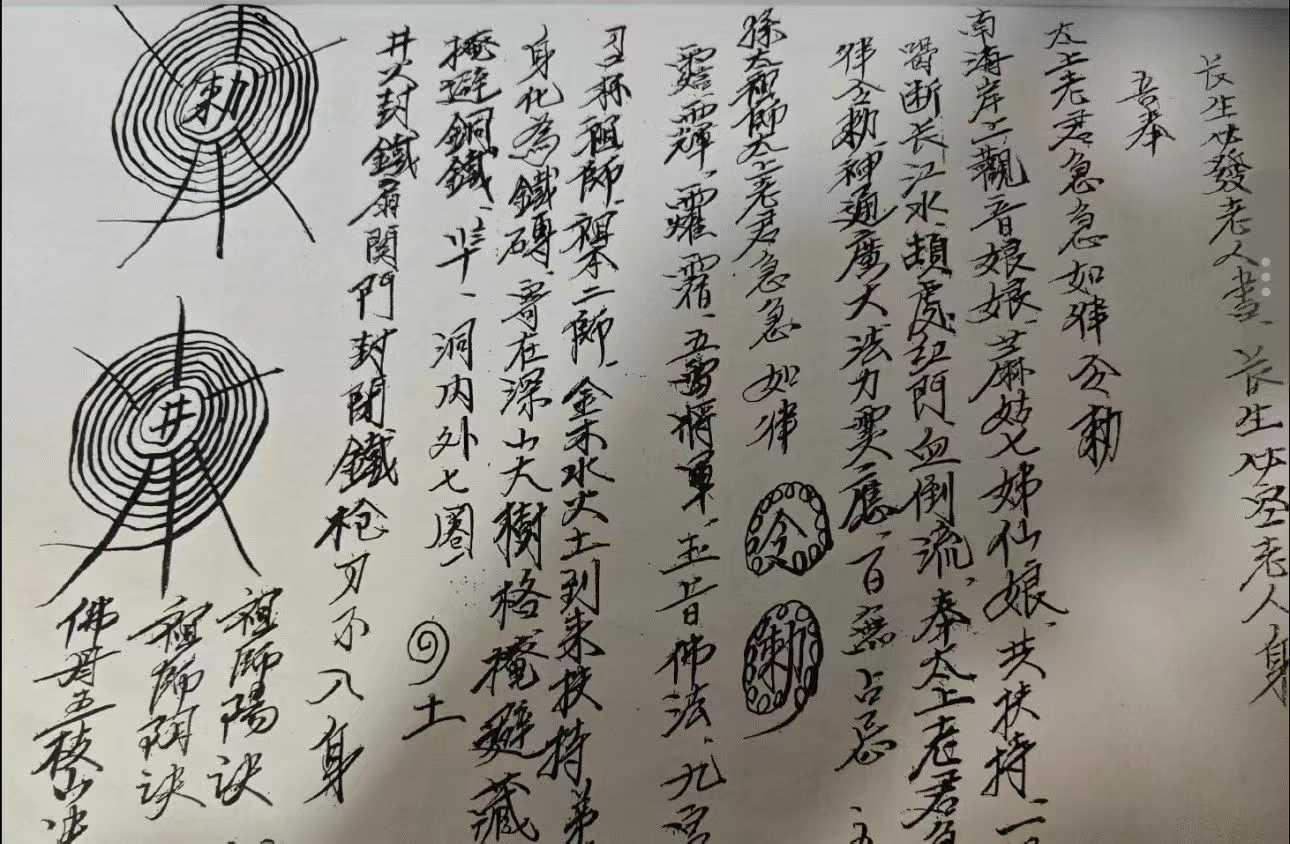 長生必發老人書、長生必堅老人身
吾奉
太上老君急急如律令勅
南海岸上觀音娘娘、麻姑七姊仙娘、共扶持一
斷長江水、頭處紅門血倒流、奉太上老君急
律令勅、神通廣大法力靈應、百無占忌
孫太祖師太上老君急急如律
令
勅
五雷將軍、五音佛法、九宮
祖師、祖本二師、金木水火土到來扶持弟
身化為鐵磚、寄在深山大樹格掩避藏
掩避銅鐵、一洞內外七圈
土
井火封鐵扇関門封閉鐵枪刀不入身
勅
井
祖師陽訣
祖師阴訣
佛母五枝山决